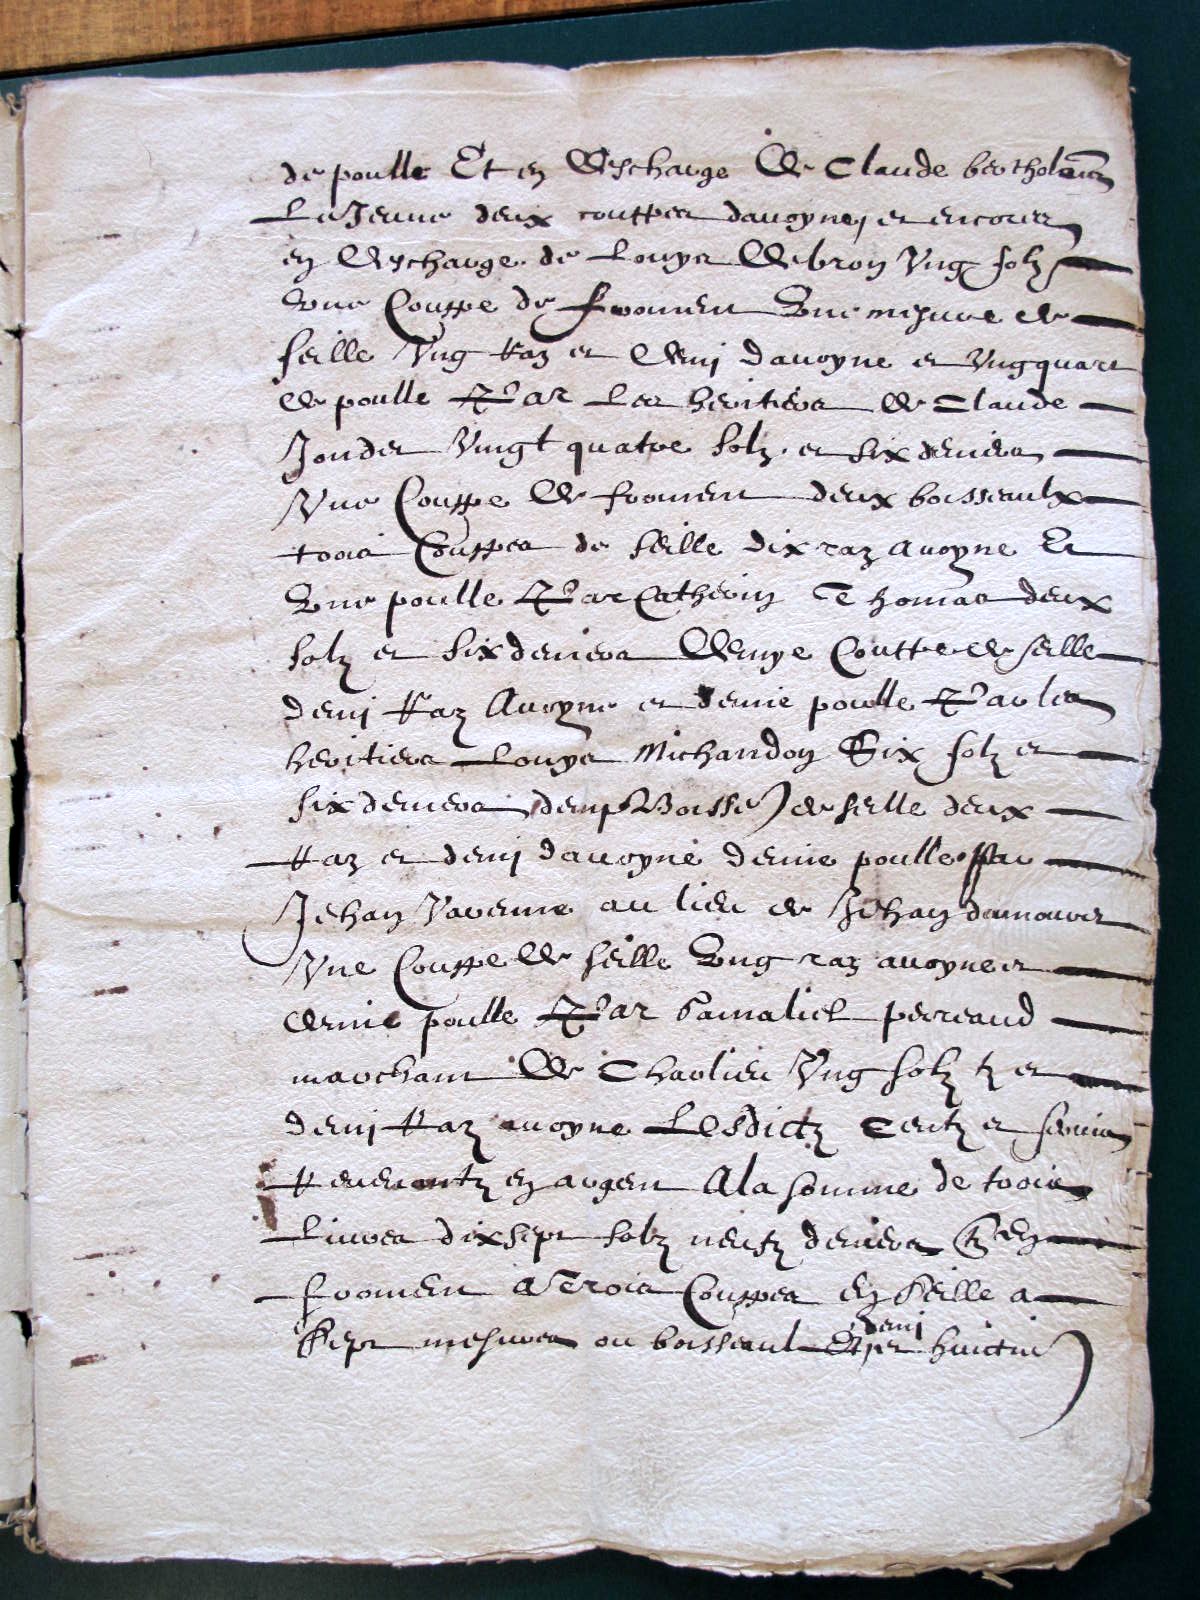 de poulle Et en descharge de Claude bertholmin
Le Jeune deux couppes davoyne, et encores
en descharge de Louys debron Ung solz
Une Couppe de froment Une mesure de
seille Ung Raz et demi davoyne et Ung quart
de poulle Par Les heritiers de Claude
Jonder Vingt quatre solz et six deniers
Une Couppe de froment deux boisseaulx
trois Couppes de seille dix raz avoyne Et
Une poulle Par Catherin Thomas deux
solz et six deniers demye Couppe de seille
demi Raz Avoyne et demie poulle Par les
heritiers Louys Michaudon Six solz et
six deniers demy Boisse) de seille deux
Raz et demi davoyne demie poulle Par
Jehan Vaverine au lieu de Jehan damourer
Une Couppe de seille Ung raz avoyne et
demie poulle Par Gamaliel perreaud
marchant de Charlieu Ung solz tz et
demi Raz avoyne Lesdictz Centz et servis
Revenantz en argent A la somme de trois
Livres dix sept solz neufz deniers En
froment a Trois Couppes en Seille a
Sept mesures ou boisseaul Et demi et huictin